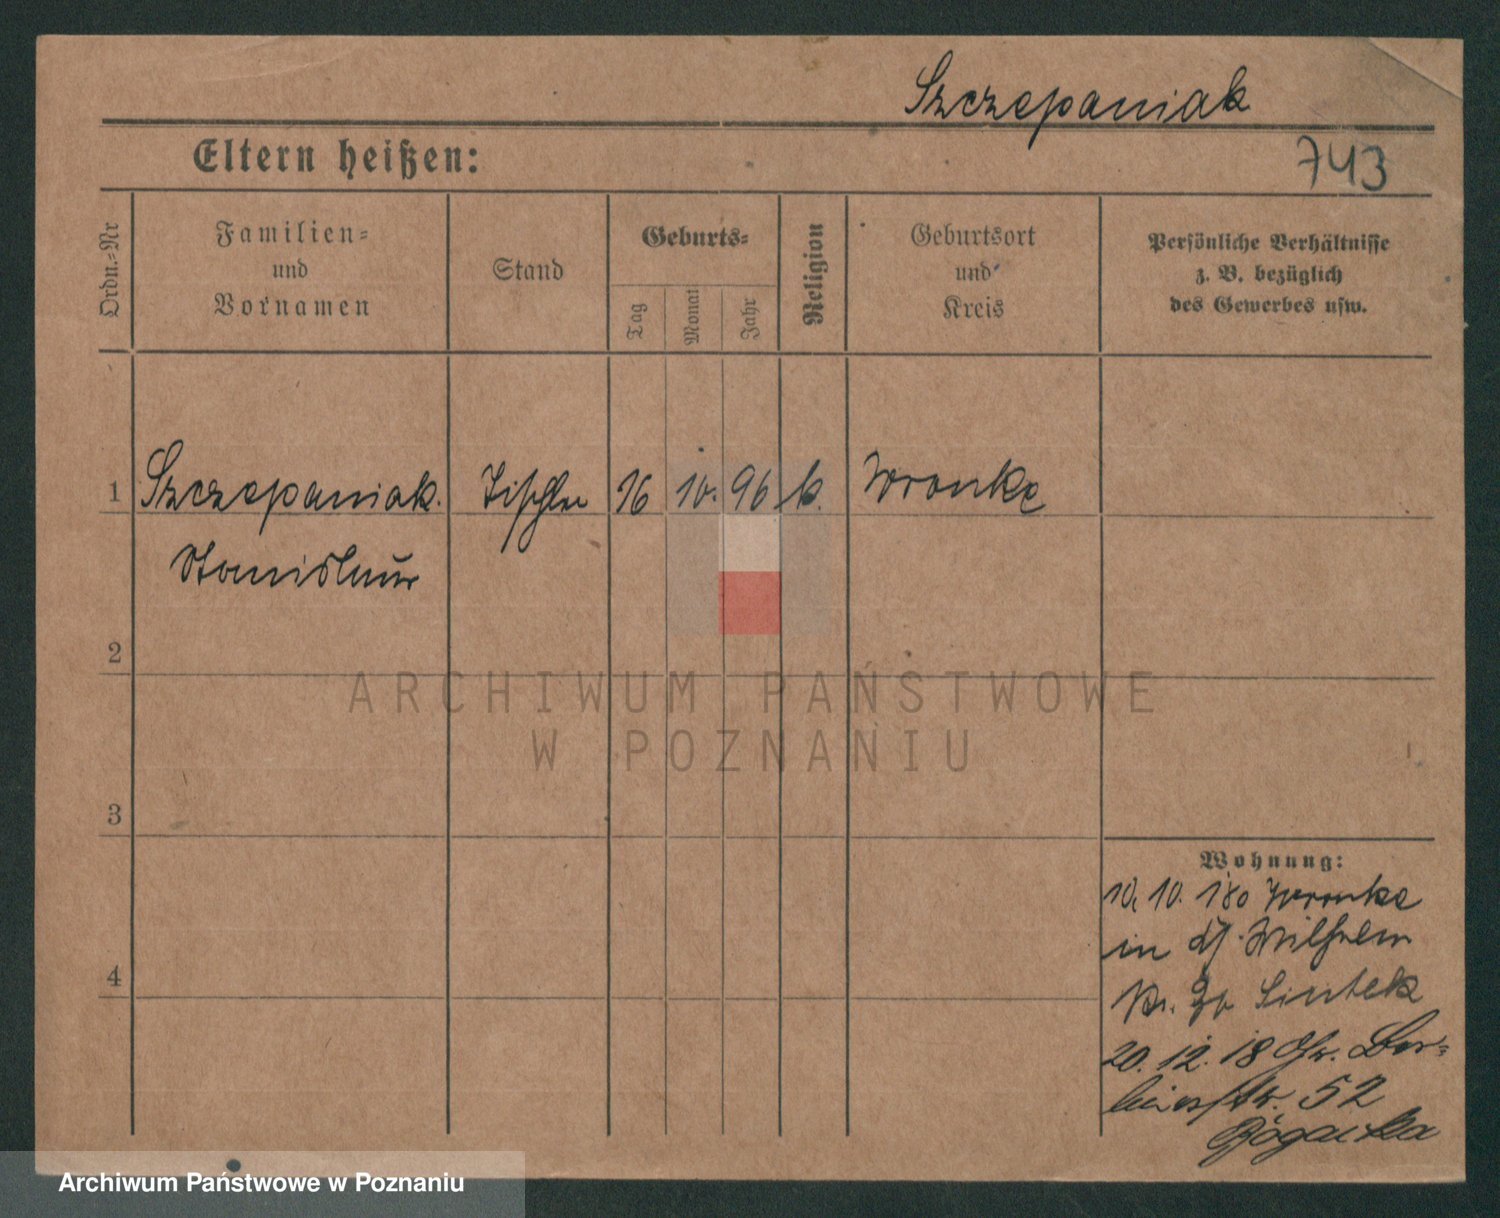 Szczepaniak
Eltern heißen:
743
Ordn.-Nr
Familien-
und
Vornamen
Stand
Geburts-
Tag
Monat
Jahr
Religion
Geburtsort
und
Kreis
Persönliche Verhältnisse
z. B. bezüglich
des Gewerbes usw.
1 Szczepaniak. Tischler 16 10. 96 k. Wronke
Stanislaus
2
ARCHIWUM PAŃSTWOWE
W POZNANIU
3
Wohnung:
10. 10. Wronke
in Wilhelm
20. 12. 18 Ber-
linerstr. 52
4
Archiwum Państwowe w Poznaniu